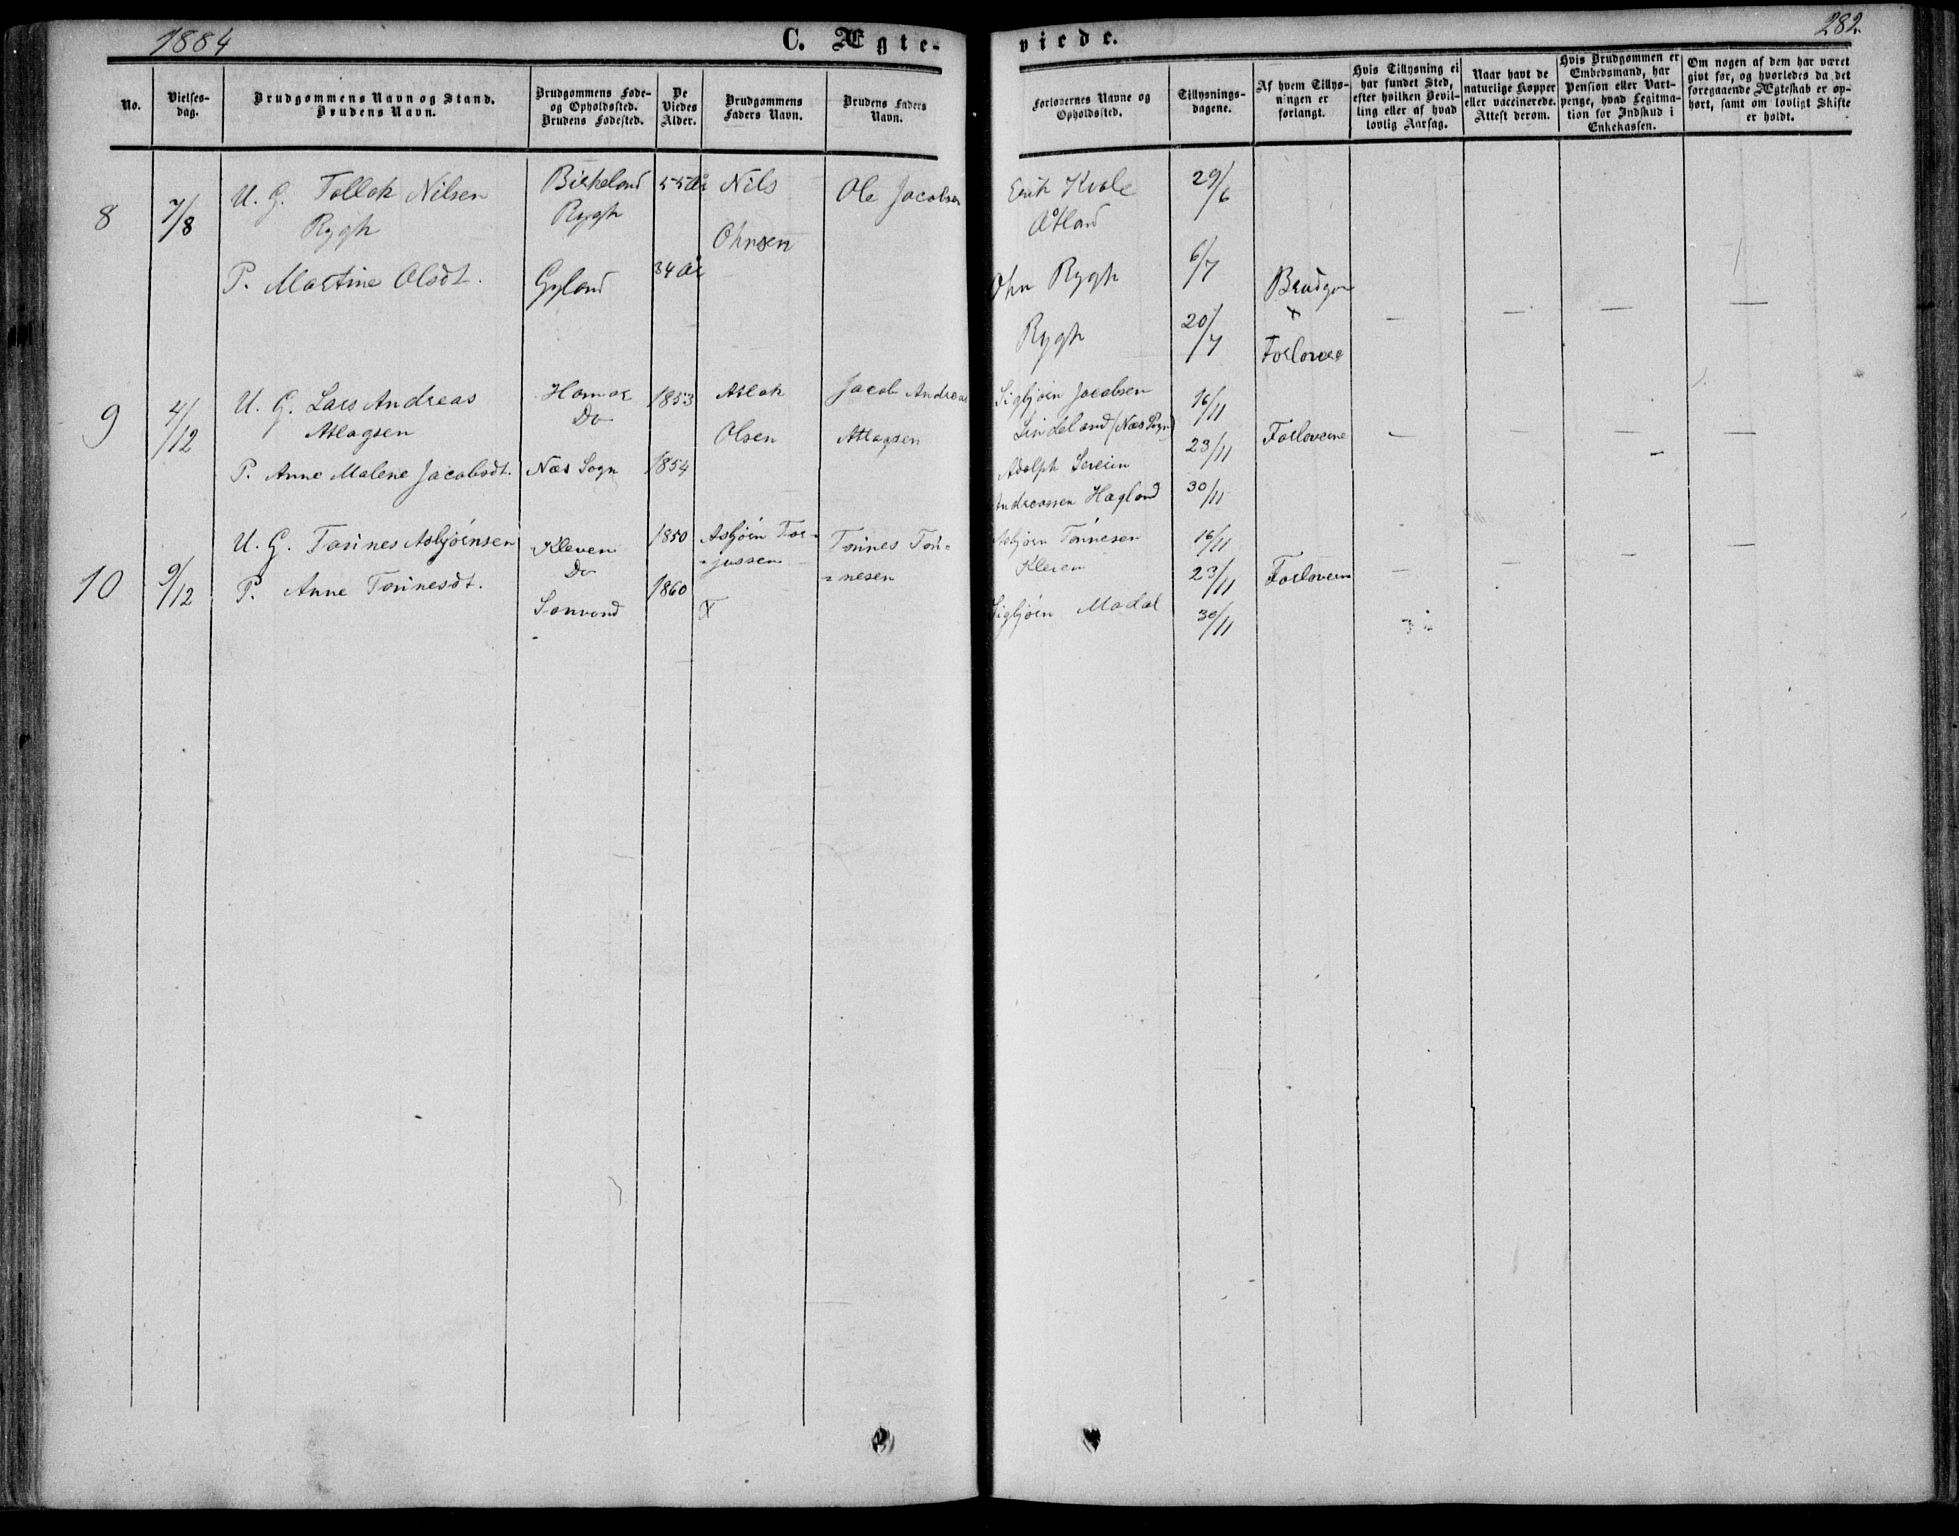 1884
C. Ægte-
viede.
282.
No.
Vielses-
dag.
Brudgommens Navn og Stand.
Brudens Navn.
Brudgommens Føde-
og Opholdssted.
Brudens Fødested.
De
Viedes
Alder.
Brudgommens
Faders Navn.
Brudens Faders
Navn.
Forlovernes Navne og
Opholdssted.
Tillysnings-
dagene.
Af hvem Tillys-
ningen er
forlangt.
Hvis Tillysning ei
har fundet Sted,
efter hvilken Bevil-
ling eller af hvad
lovlig Aarsag.
Naar havt de
naturlige Kopper
eller vaccinerede.
Attest derom.
Hvis Brudgommen er
Embedsmand, har
Pension eller Vart-
penge, hvad Legitima-
tion for Indskud i
Enkekassen.
Om nogen af dem har været
givt før, og hvorledes da det
foregaaende Ægteskab er op-
hørt, samt om lovligt Skifte
er holdt.
8
7/8
U. G. Tollak Nilsen
Rygh
P. Martine Olsdt.
Birkeland
Rygh
Gyland
55 År
34 År
Nils
Ohnsen
Ole Jacobsen
Erik Kvale
Åtland
Ohn Rygh
Rygh
29/6
6/7
20/7
Brudgom
+
Forlovere
9
4/12
U. G. Lars Andreas
Atlagsen
P. Anne Malene Jacobsdt.
Hamar
Do
Næs Sogn
1853
1854
Atlak
Olsen
Jacob Andreas
Atlagsen
Sigbjørn Jacobsen
Lindeland (Næs Sogn)
Adolph Severin
Andreassen Hægland
16/11
23/11
30/11
Forloverne
10
9/12
U. G. Tønnes Asbjørnsen
P. Anne Tønnesdt.
Kleven
Do
Sanvand
1850
1860
Asbjørn Tor-
-jussen
X
Tønnes Tøn-
-nesen
Asbjørn Tønnesen
Kleven
Sigbjørn Modal
16/11
23/11
30/11
Forlovern